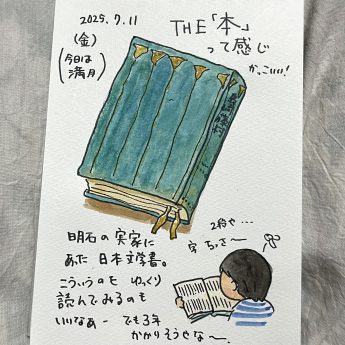 2025.7.11
(金)
(今日は
満月)
THE「本」
って感じ
かっこいい!
島崎藤村
2段や…
字 ちっさ〜
明石の実家に
あた 日本文学書。
こういうのを ゆっくり
読んでみるのも
いいなあー でも3年
かかりそうやな〜。